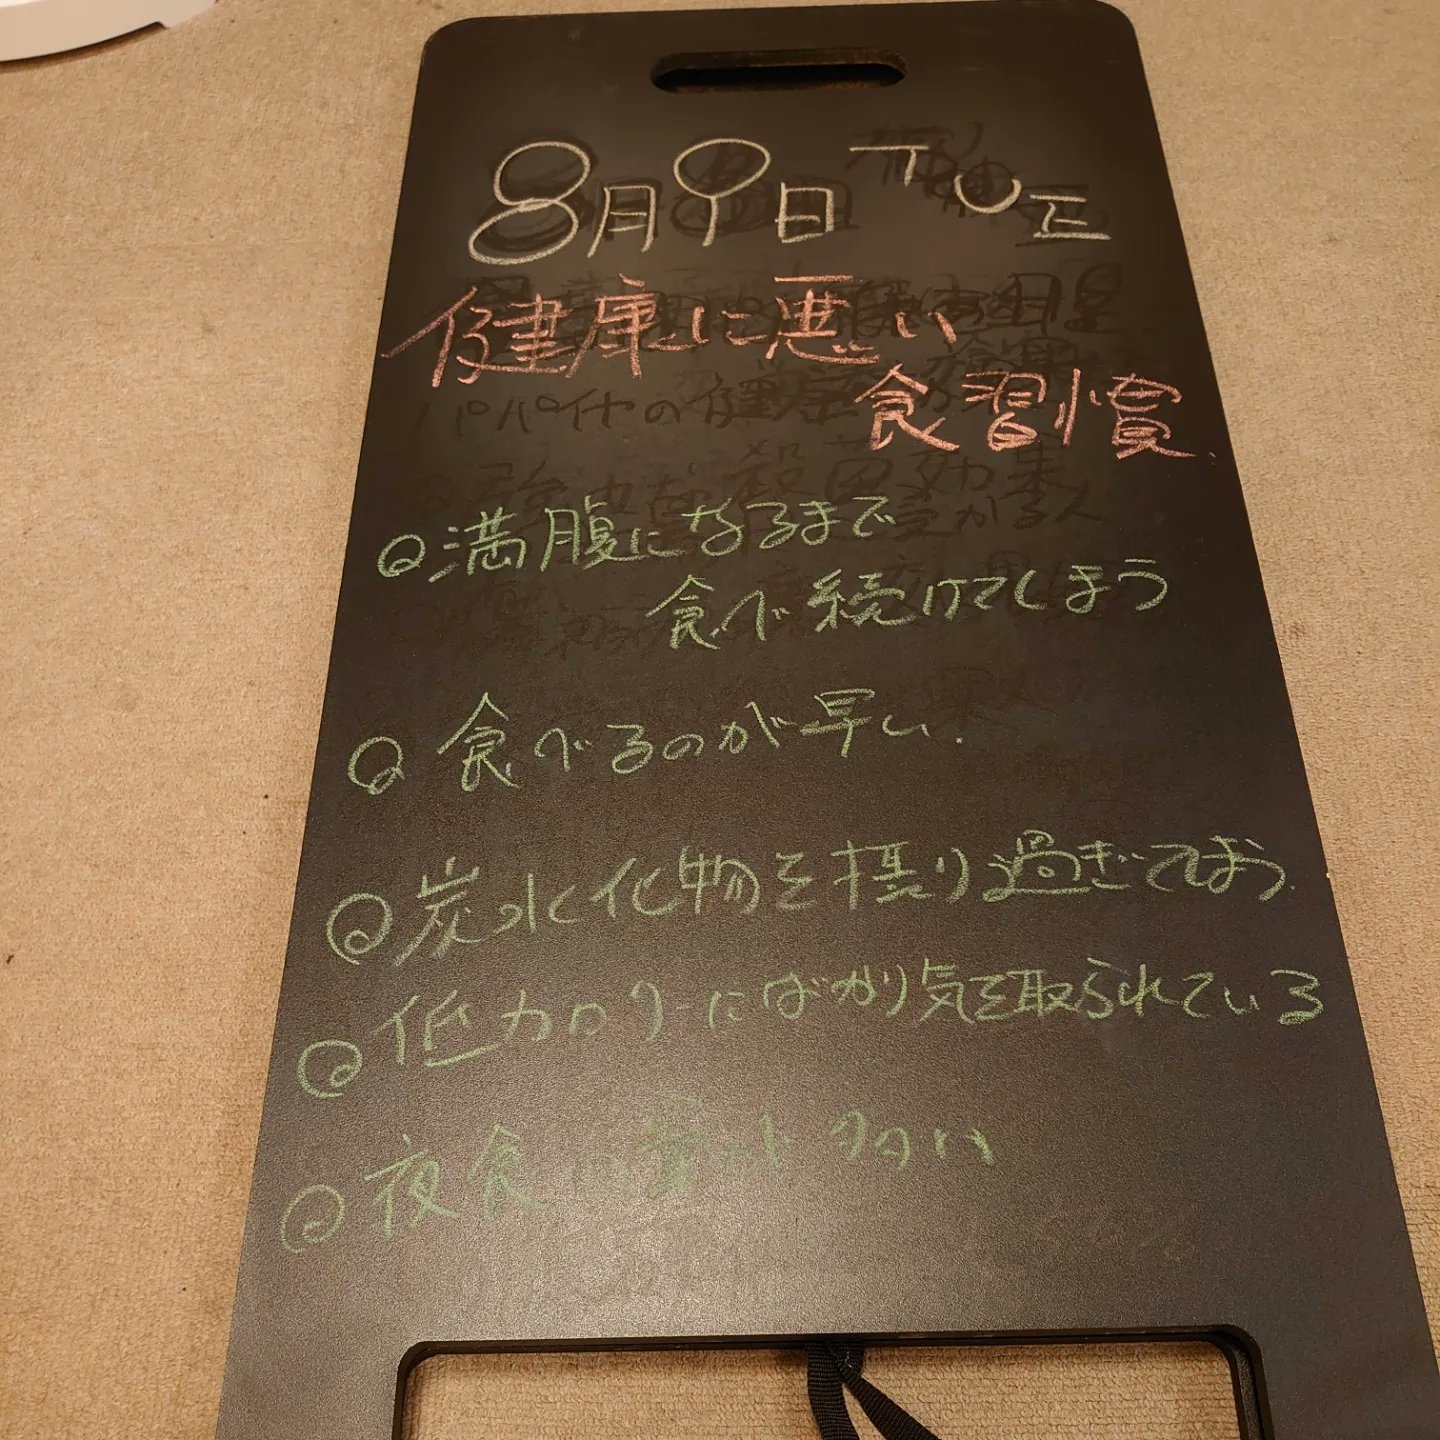 8月9日 TUE
健康に悪い
食習慣.
満腹になるまで
食べ続けてしまう
食べるのが早い.
炭水化物を摂り過ぎてしまう.
低カロリーにばかり気を取られている
夜食の量が多い
パパイヤの健康効果